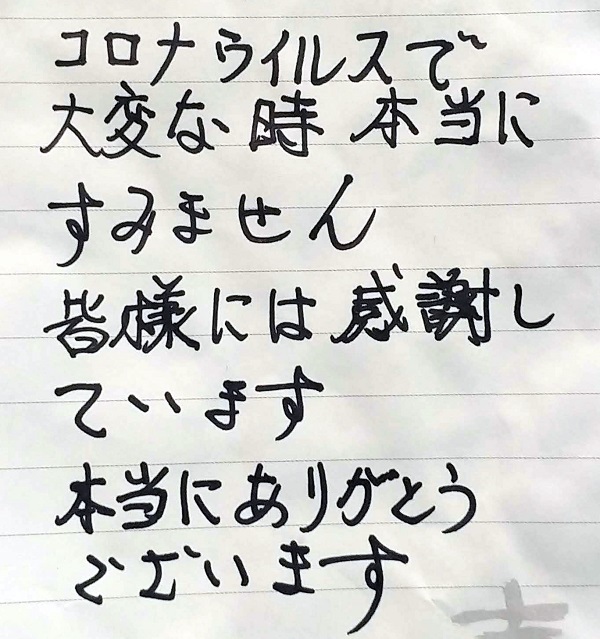 コロナウイルスで
大変な時 本当に
すみません
皆様には感謝し
ています
本当にありがとう
ございます